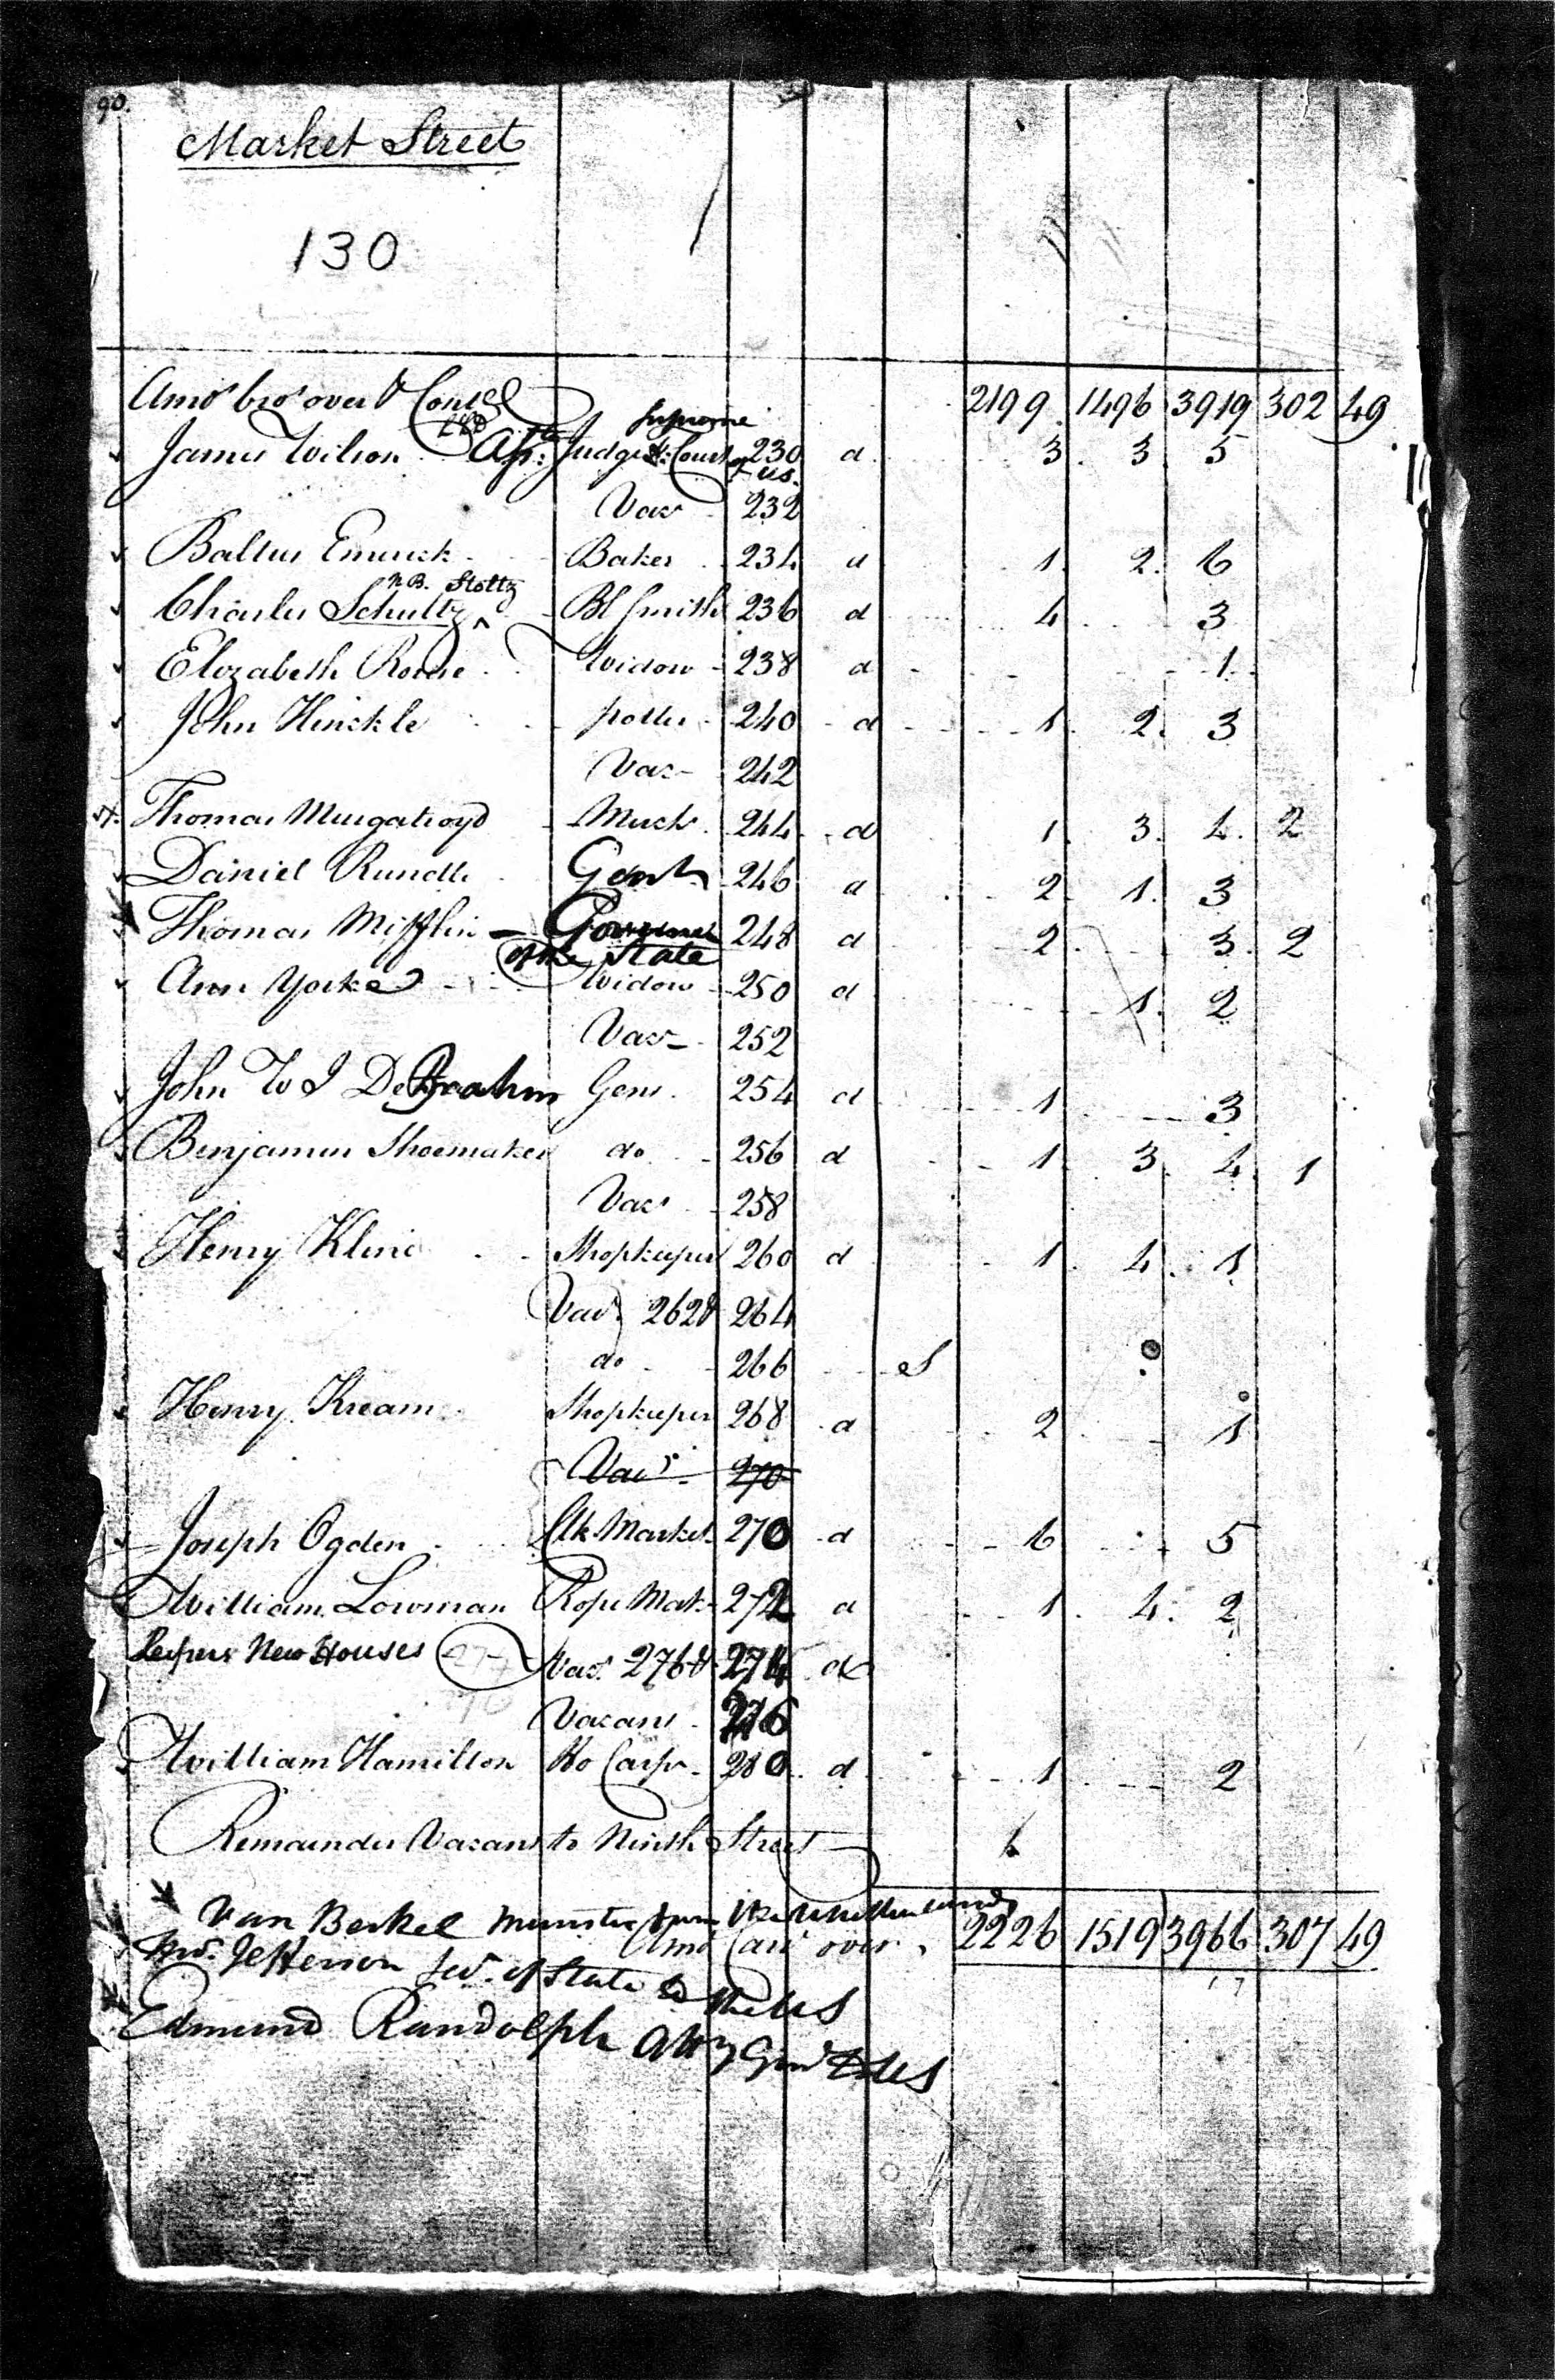 90.
Market Street
130
Amo bro over & Cont 2199 1496 3919 302 49
Supreme
James Wilson Ass: Judge Court of US. 230 d 3 3 5
Vac 232
Baltus Emerick Baker 234 d 1 2 6
N.B. Stoltz
Charles Schultz Bl Smith 236 d 4 3
Elizabeth Rowe Widow 238 d 1
John Hinckle potter 240 d 1 2 3
Vac 242
Thomas Murgatroyd Merch 244 d 1 3 4 2
Daniel Rundle Gent 246 d 2 1 3
Thomas Mifflin Governor 248 d 2 3 2
of the State
Ann Yorke Widow 250 d 1 2
Vac 252
John W I De Brahm Gent 254 d 1 3
Benjamin Shoemaker do 256 d 1 3 4 1
Vac 258
Henry Kline Shopkeeper 260 d 1 4 1
Vac 262 & 264
do 266 S
Henry Kream Shopkeeper 268 d 2 1
Vac 270
Joseph Ogden Clk Market 270 d 6 5
William Lowman Rope Mak 272 d 1 4 2
New Houses Vac 276 & 274 d
Vacant 276
William Hamilton Ho Carp 280 d 1 2
Remainder Vacant to Ninth Street 6
Van Berkel Minister from the Netherlands
Amt Carr over 2226 1519 3966 307 49
Jefferson Sec. of State to the US
Edmund Randolph Atty Genl US